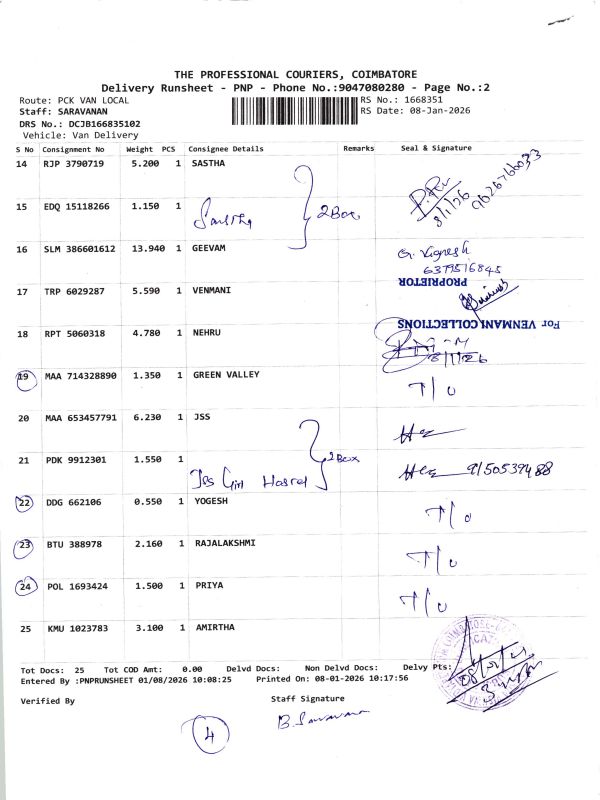 THE PROFESSIONAL COURIERS, COIMBATORE
Delivery Runsheet - PNP - Phone No.:9047080280 - Page No.:2
Route: PCK VAN LOCAL
Staff: SARAVANAN
DRS No.: DCJB166835102
Vehicle: Van Delivery
RS No.: 1668351
RS Date: 08-Jan-2026
S No Consignment No Weight PCS Consignee Details Remarks Seal & Signature
14 RJP 3790719 5.200 1 SASTHA
8/1/26
15 EDQ 15118266 1.150 1 Sastha 2Box
16 SLM 386601612 13.940 1 GEEVAM G. Vignesh
6379516845
PROPRIETOR
17 TRP 6029287 5.590 1 VENMANI
For VENMANI COLLECTIONS
18 RPT 5060318 4.780 1 NEHRU
8/1/26
19 MAA 714328890 1.350 1 GREEN VALLEY T/O
20 MAA 653457791 6.230 1 JSS
21 PDK 9912301 1.550 1 2Box 9150539488
22 DDG 662106 0.550 1 YOGESH T/O
23 BTU 388978 2.160 1 RAJALAKSHMI T/O
24 POL 1693424 1.500 1 PRIYA T/O
25 KMU 1023783 3.100 1 AMIRTHA
Tot Docs: 25 Tot COD Amt: 0.00 Delvd Docs: Non Delvd Docs: Delvy Pts:
Entered By :PNPRUNSHEET 01/08/2026 10:08:25 Printed On: 08-01-2026 10:17:56
Verified By Staff Signature
4 B. Saravana